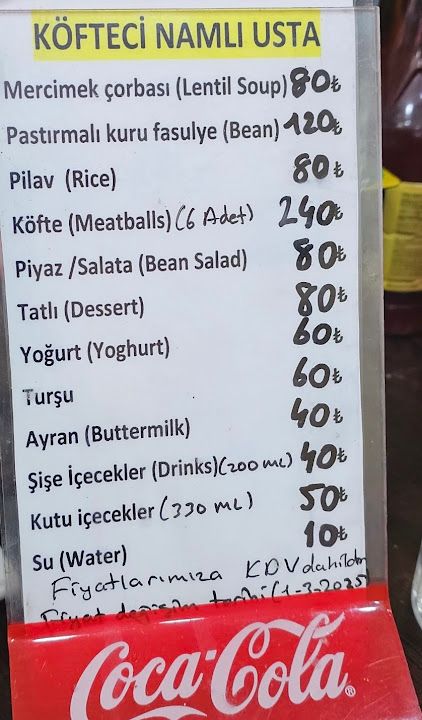 KÖFTECİ NAMLI USTA
Mercimek çorbası (Lentil Soup) 80₺
Pastırmalı kuru fasulye (Bean) 120₺
Pilav (Rice) 80₺
Köfte (Meatballs) (6 Adet) 240₺
Piyaz /Salata (Bean Salad) 80₺
Tatlı (Dessert) 80₺
Yoğurt (Yoghurt) 60₺
Turşu 60₺
Ayran (Buttermilk) 40₺
Şişe İçecekler (Drinks) (200 mL) 40₺
Kutu içecekler (330 mL) 50₺
Su (Water) 10₺
Fiyatlarımıza KDV dahildir
Fiyat değişim tarihi (1-3-2025)
Coca-Cola®